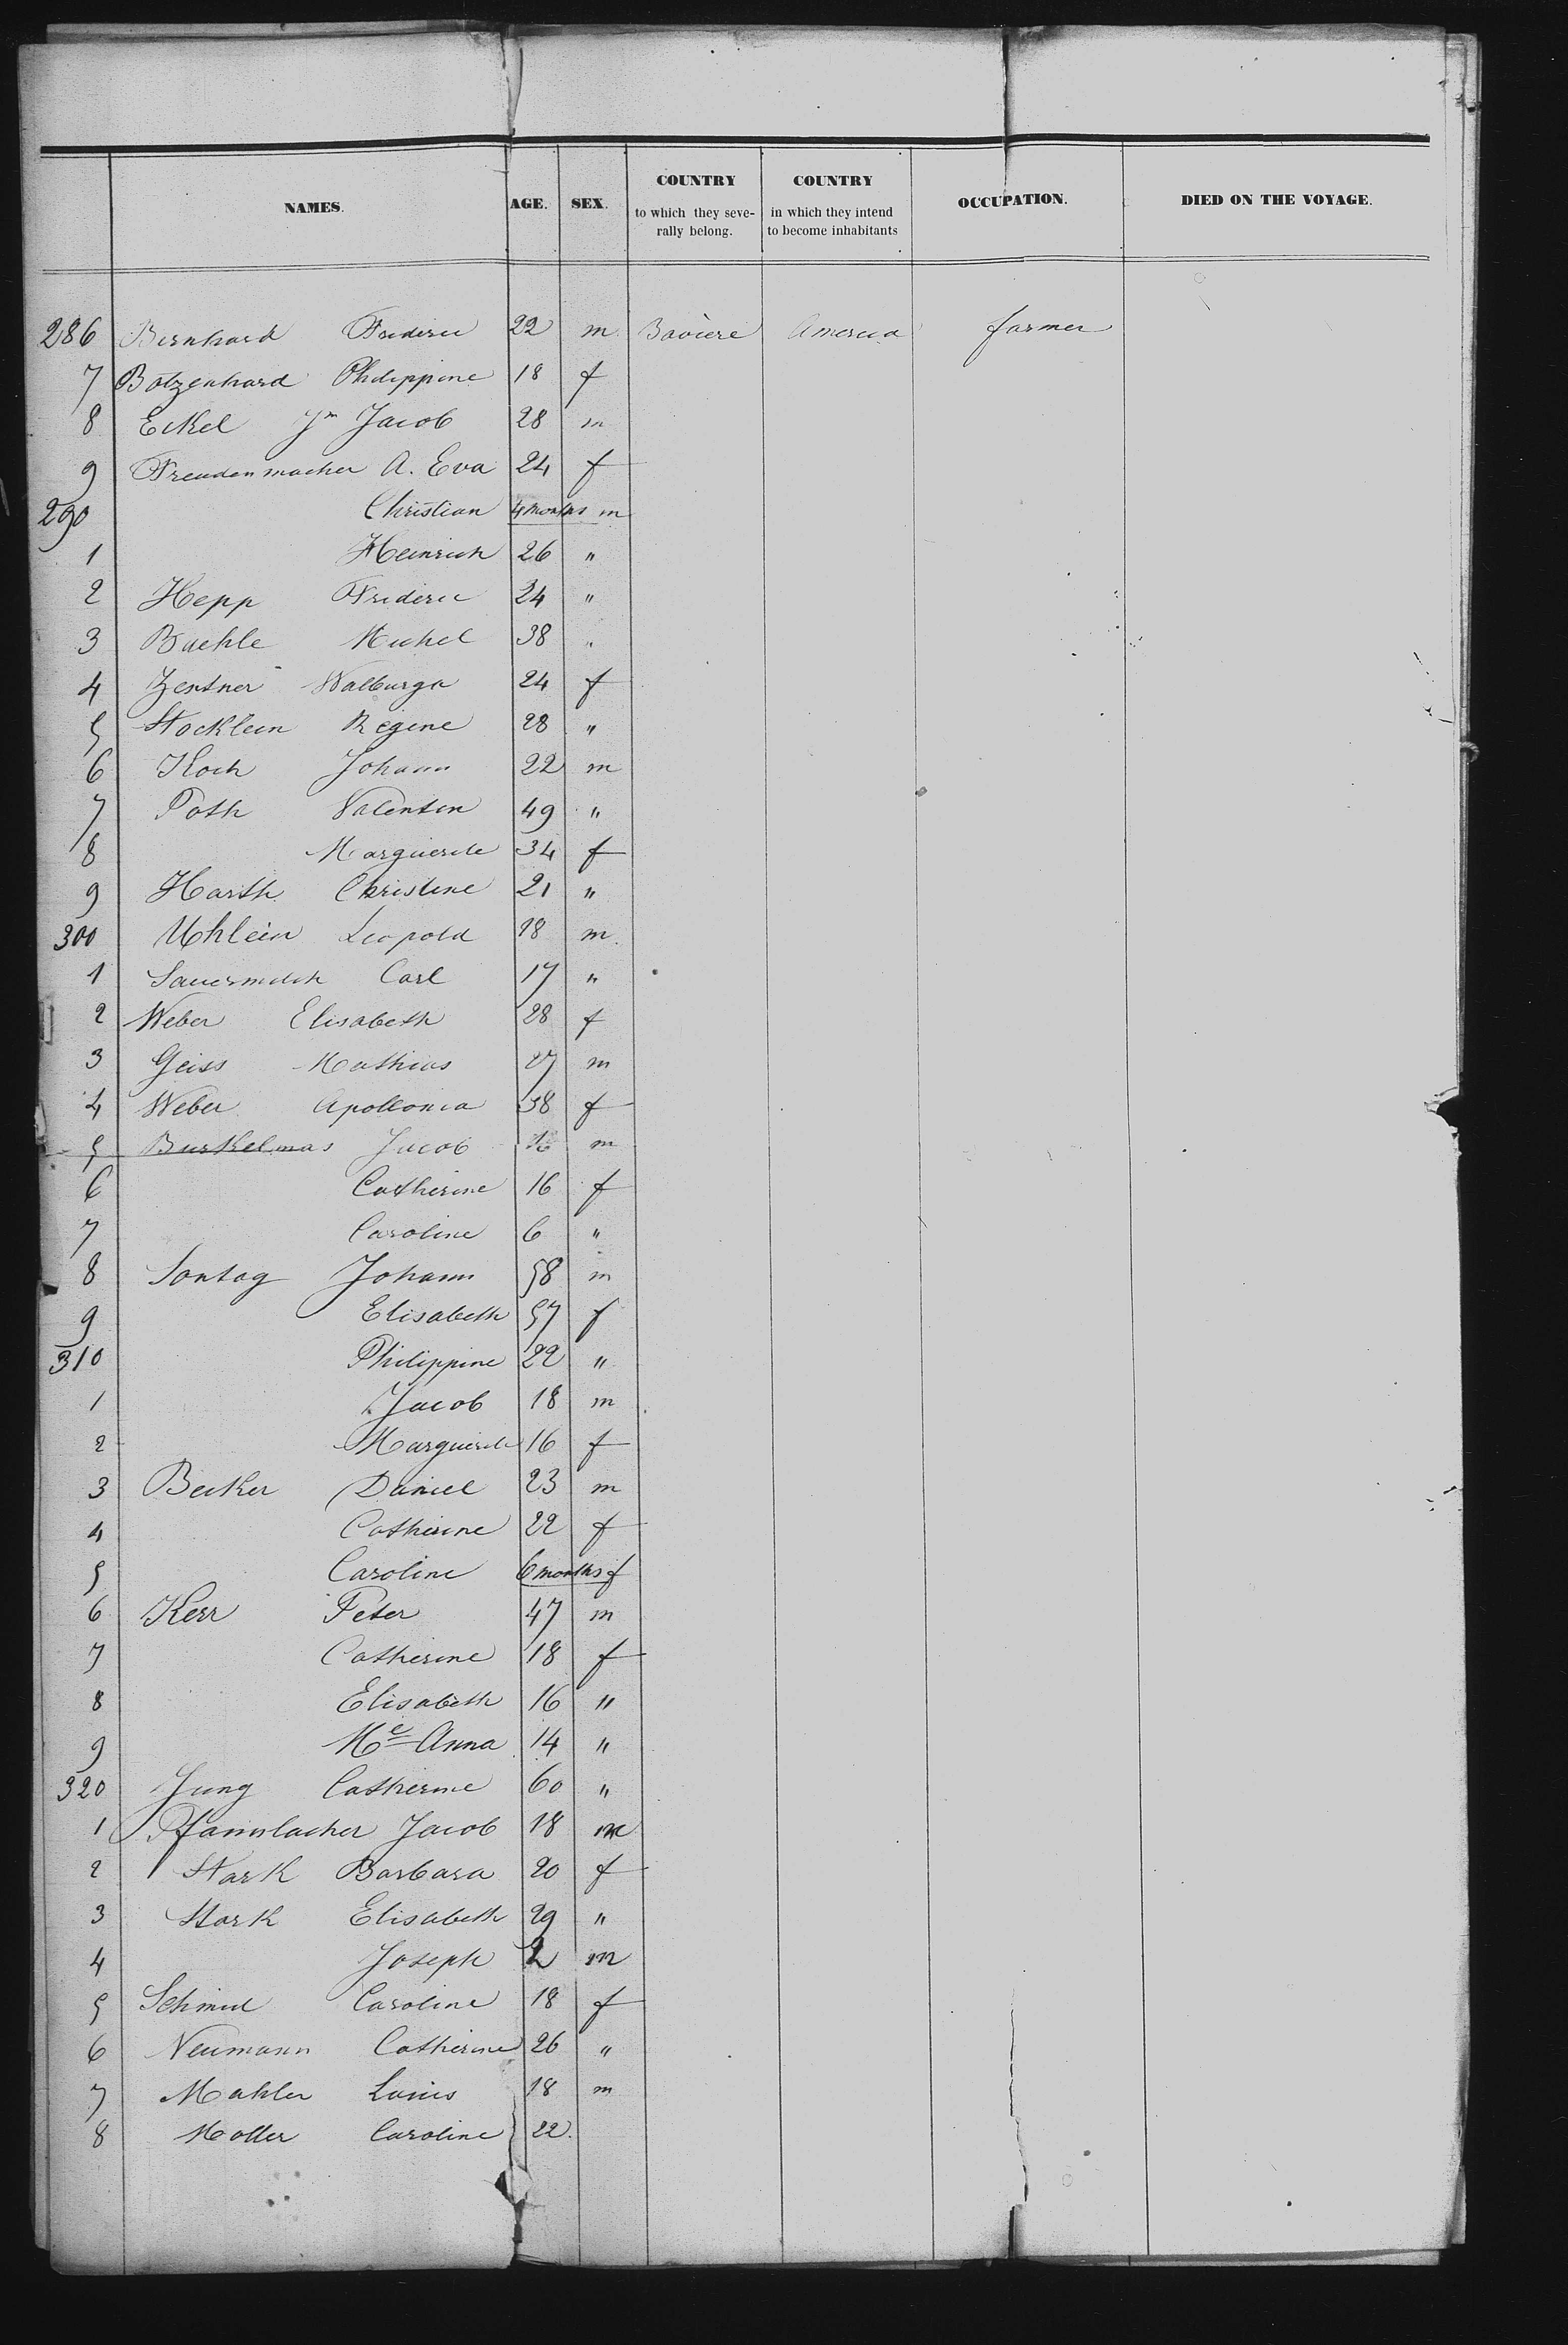 NAMES. AGE. SEX. COUNTRY to which they seve- rally belong. COUNTRY in which they intend to become inhabitants OCCUPATION. DIED ON THE VOYAGE.
286 Bernhard Frederic 22 m Bavière America farmer
7 Botzenhard Philippine 18 f
8 Eckel Jn Jacob 28 m
9 Freudenmacher A. Eva 24 f
290 Christian 4 months m
1 Heinrich 26 "
2 Hepp Frederic 24 "
3 Buehle Michel 38 "
4 Zentner Walburga 24 f
5 Stocklein Regine 28 "
6 Koch Johann 22 m
7 Poth Valentin 49 "
8 Marguerite 34 f
9 Harth Christine 21 "
300 Uhlein Leopold 18 m.
1 Sauermilch Carl 17 "
2 Weber Elisabeth 28 f
3 Geiss Mathias 27 m
4 Weber Apollonia 38 f
5 Burkelmas Jacob m
6 Catherine 16 f
7 Caroline 6 "
8 Sontag Johann 58 m
9 Elisabeth 57 f
310 Philippine 22 "
1 Jacob 18 m
2 Marguerite 16 f
3 Becker Daniel 23 m
4 Catherine 22 f
5 Caroline 6 months f
6 Kerr Peter 47 m
7 Catherine 18 f
8 Elisabeth 16 "
9 Me Anna 14 "
320 Jung Catherine 60 "
1 Pfannlacher Jacob 18 m
2 Stark Barbara 20 f
3 Stark Elisabeth 29 "
4 Joseph 2 m
5 Schmid Caroline 18 f
6 Neumann Catherine 26 "
7 Mahler Louis 18 m
8 Moller Caroline 22.